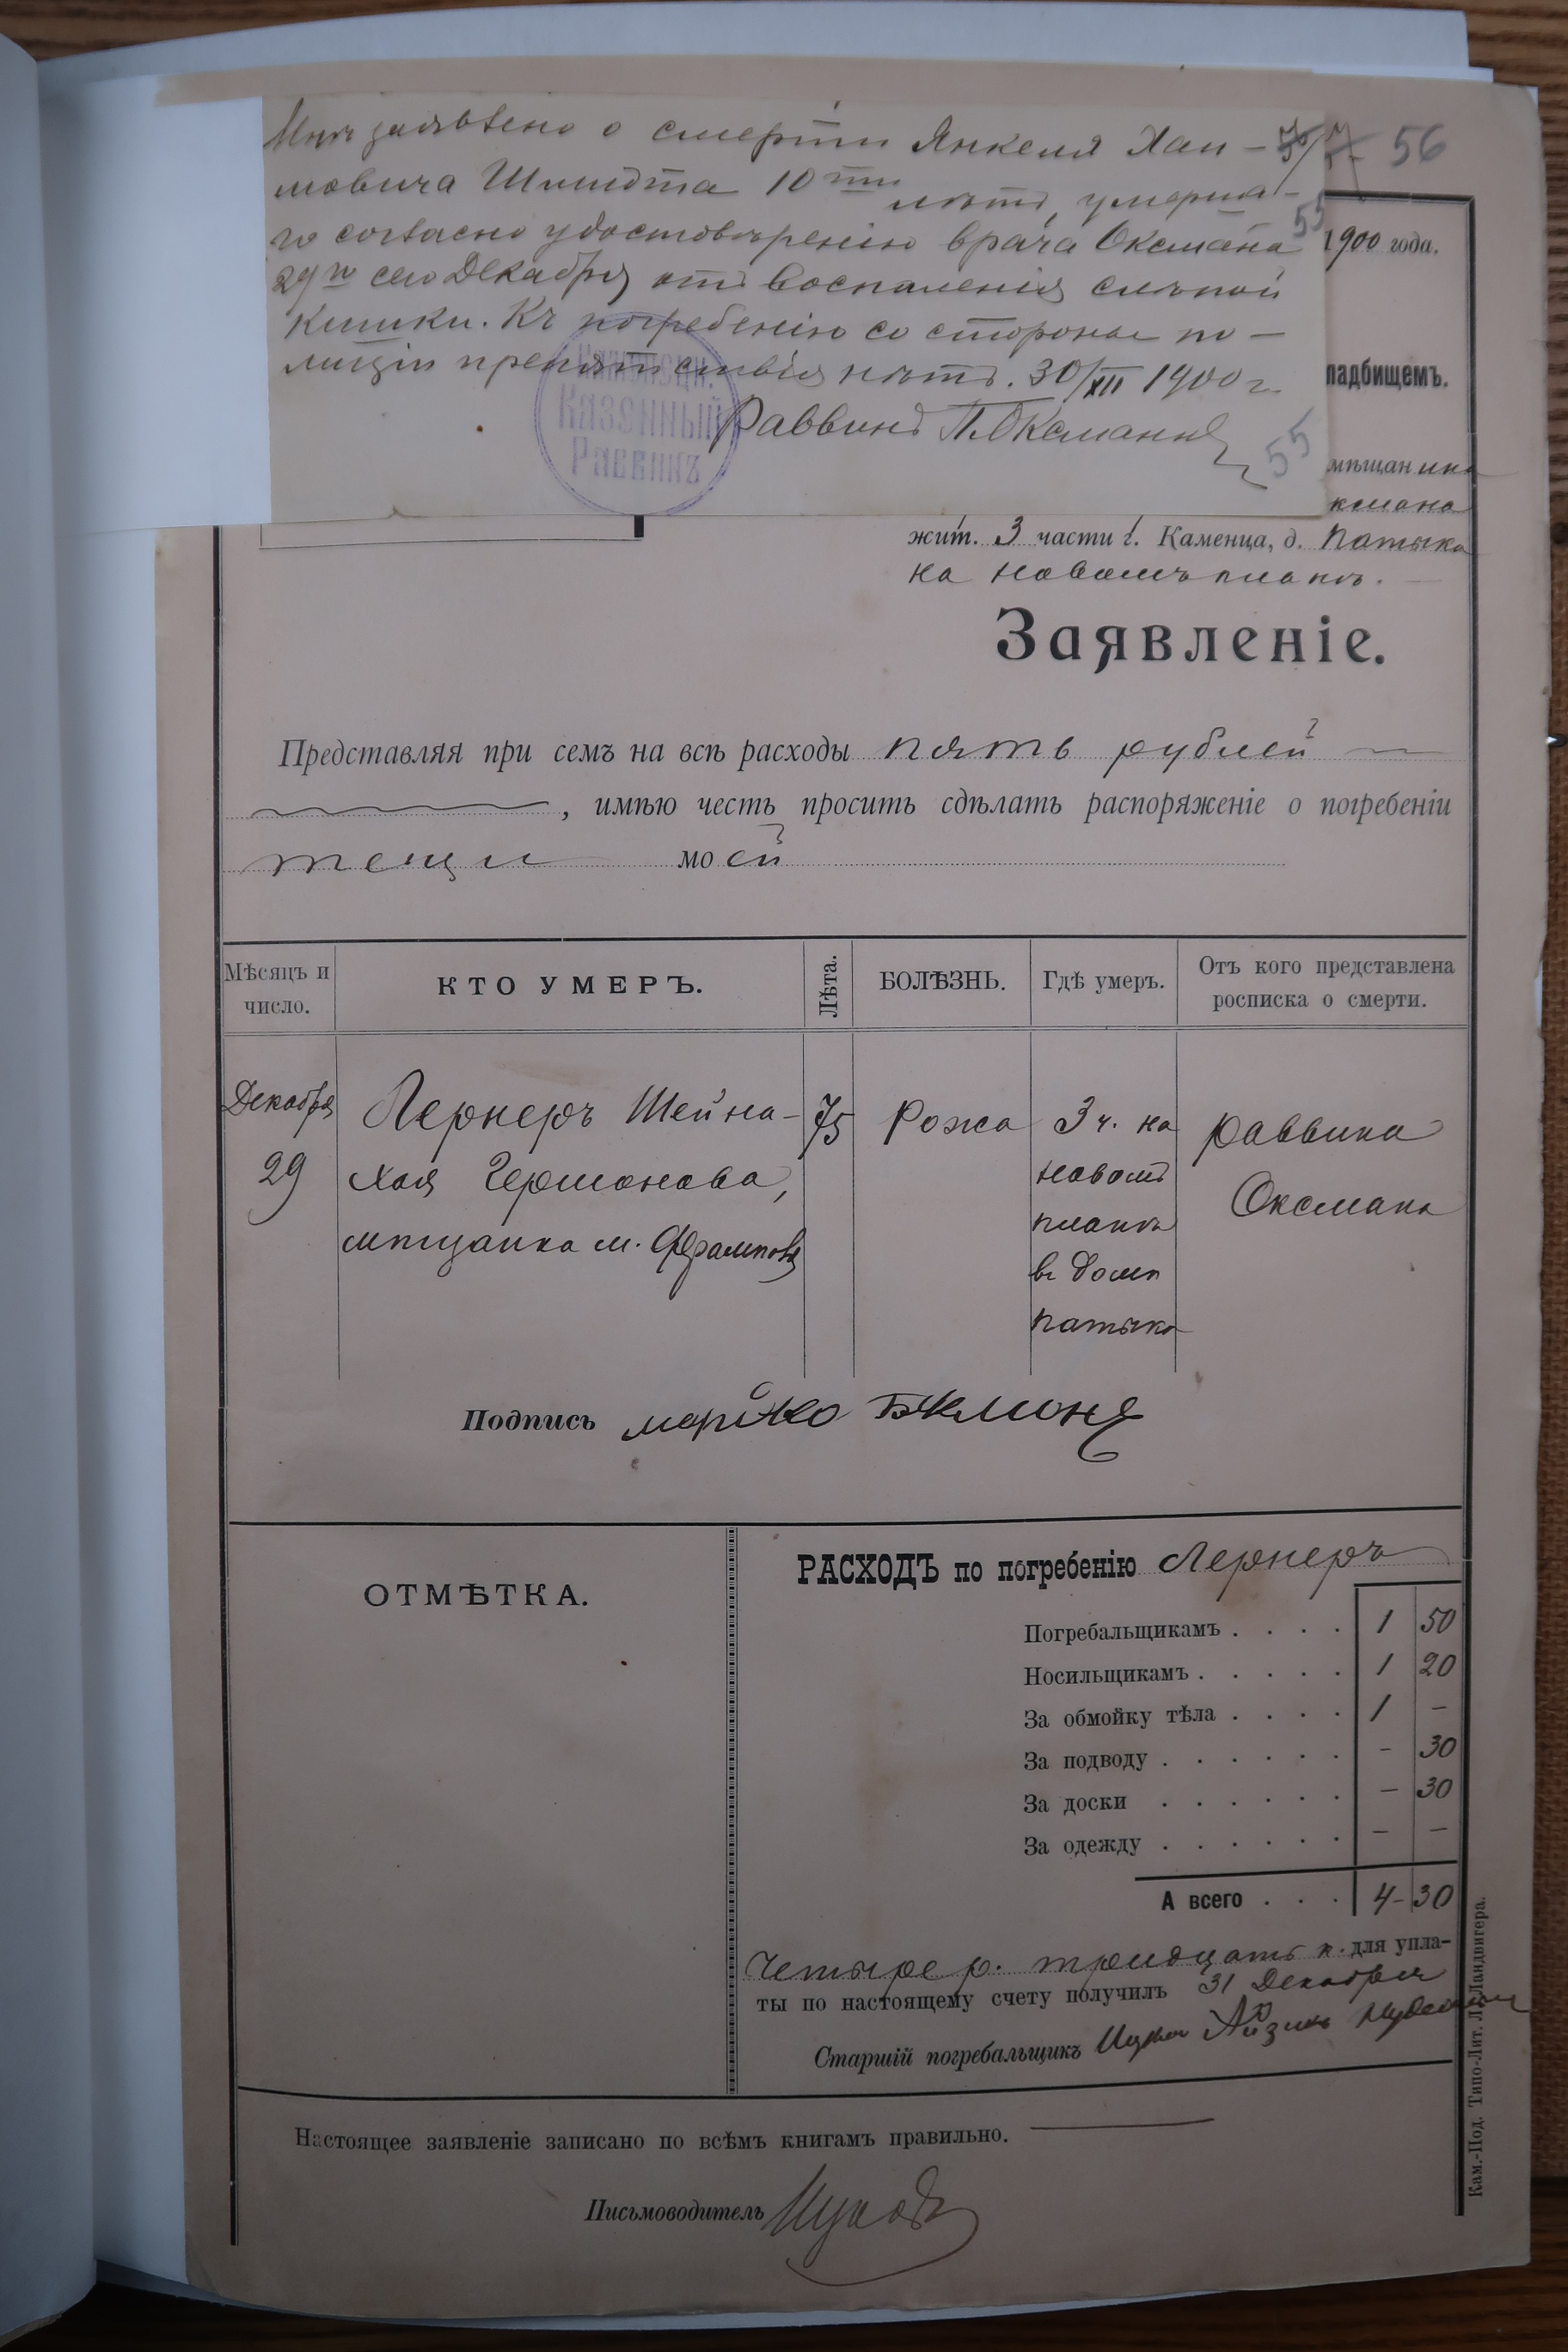 Мнѣ заявлено о смерти Янкеля Хаи-
мовича Шмидта 10ти лѣтъ, умерша-
го согласно удостовѣренію врача Оксмана
29го сего Декабря отъ воспаленія слѣпой
кишки. Къ погребенію со стороны по-
лиціи препятствія нѣтъ. 30/XII 1900 г.
Раввинъ П. Оксманъ
Казенный
Раввинъ
56
55
55
1900 года.
ладбищемъ.
мѣщанина
ксмана
жит. 3 части г. Каменца, д. Патыка
на новомъ планѣ.
Заявленіе.
Представляя при семъ на всѣ расходы пять рублей
, имѣю честь просить сдѣлать распоряженіе о погребеніи
тещи моей
Мѣсяцъ и число. КТО УМЕРЪ. Лѣта. БОЛѢЗНЬ. Гдѣ умеръ. Отъ кого представлена росписка о смерти.
Декабря Лернеръ Шейна- 75 Рожа 3 ч. на раввина
29 Хая Гершонова, новомъ Оксмана
мѣщанка м. Фрамповя планѣ
въ домѣ
Патыка
Подпись
ОТМѢТКА.
РАСХОДЪ по погребенію Лернеръ
Погребальщикамъ . . . . 1 50
Носильщикамъ . . . . . 1 20
За обмойку тѣла . . . . 1 –
За подводу . . . . . . – 30
За доски . . . . . . – 30
За одежду . . . . . . – –
А всего . . . 4 – 30
Четыре р. тридцать к. для упла-
ты по настоящему счету получилъ 31 Декабря
Старшій погребальщикъ Ицко Айзикъ
Настоящее заявленіе записано по всѣмъ книгамъ правильно.
Письмоводитель
Кам.-Под. Типо-Лит. Л. Ландвигера.